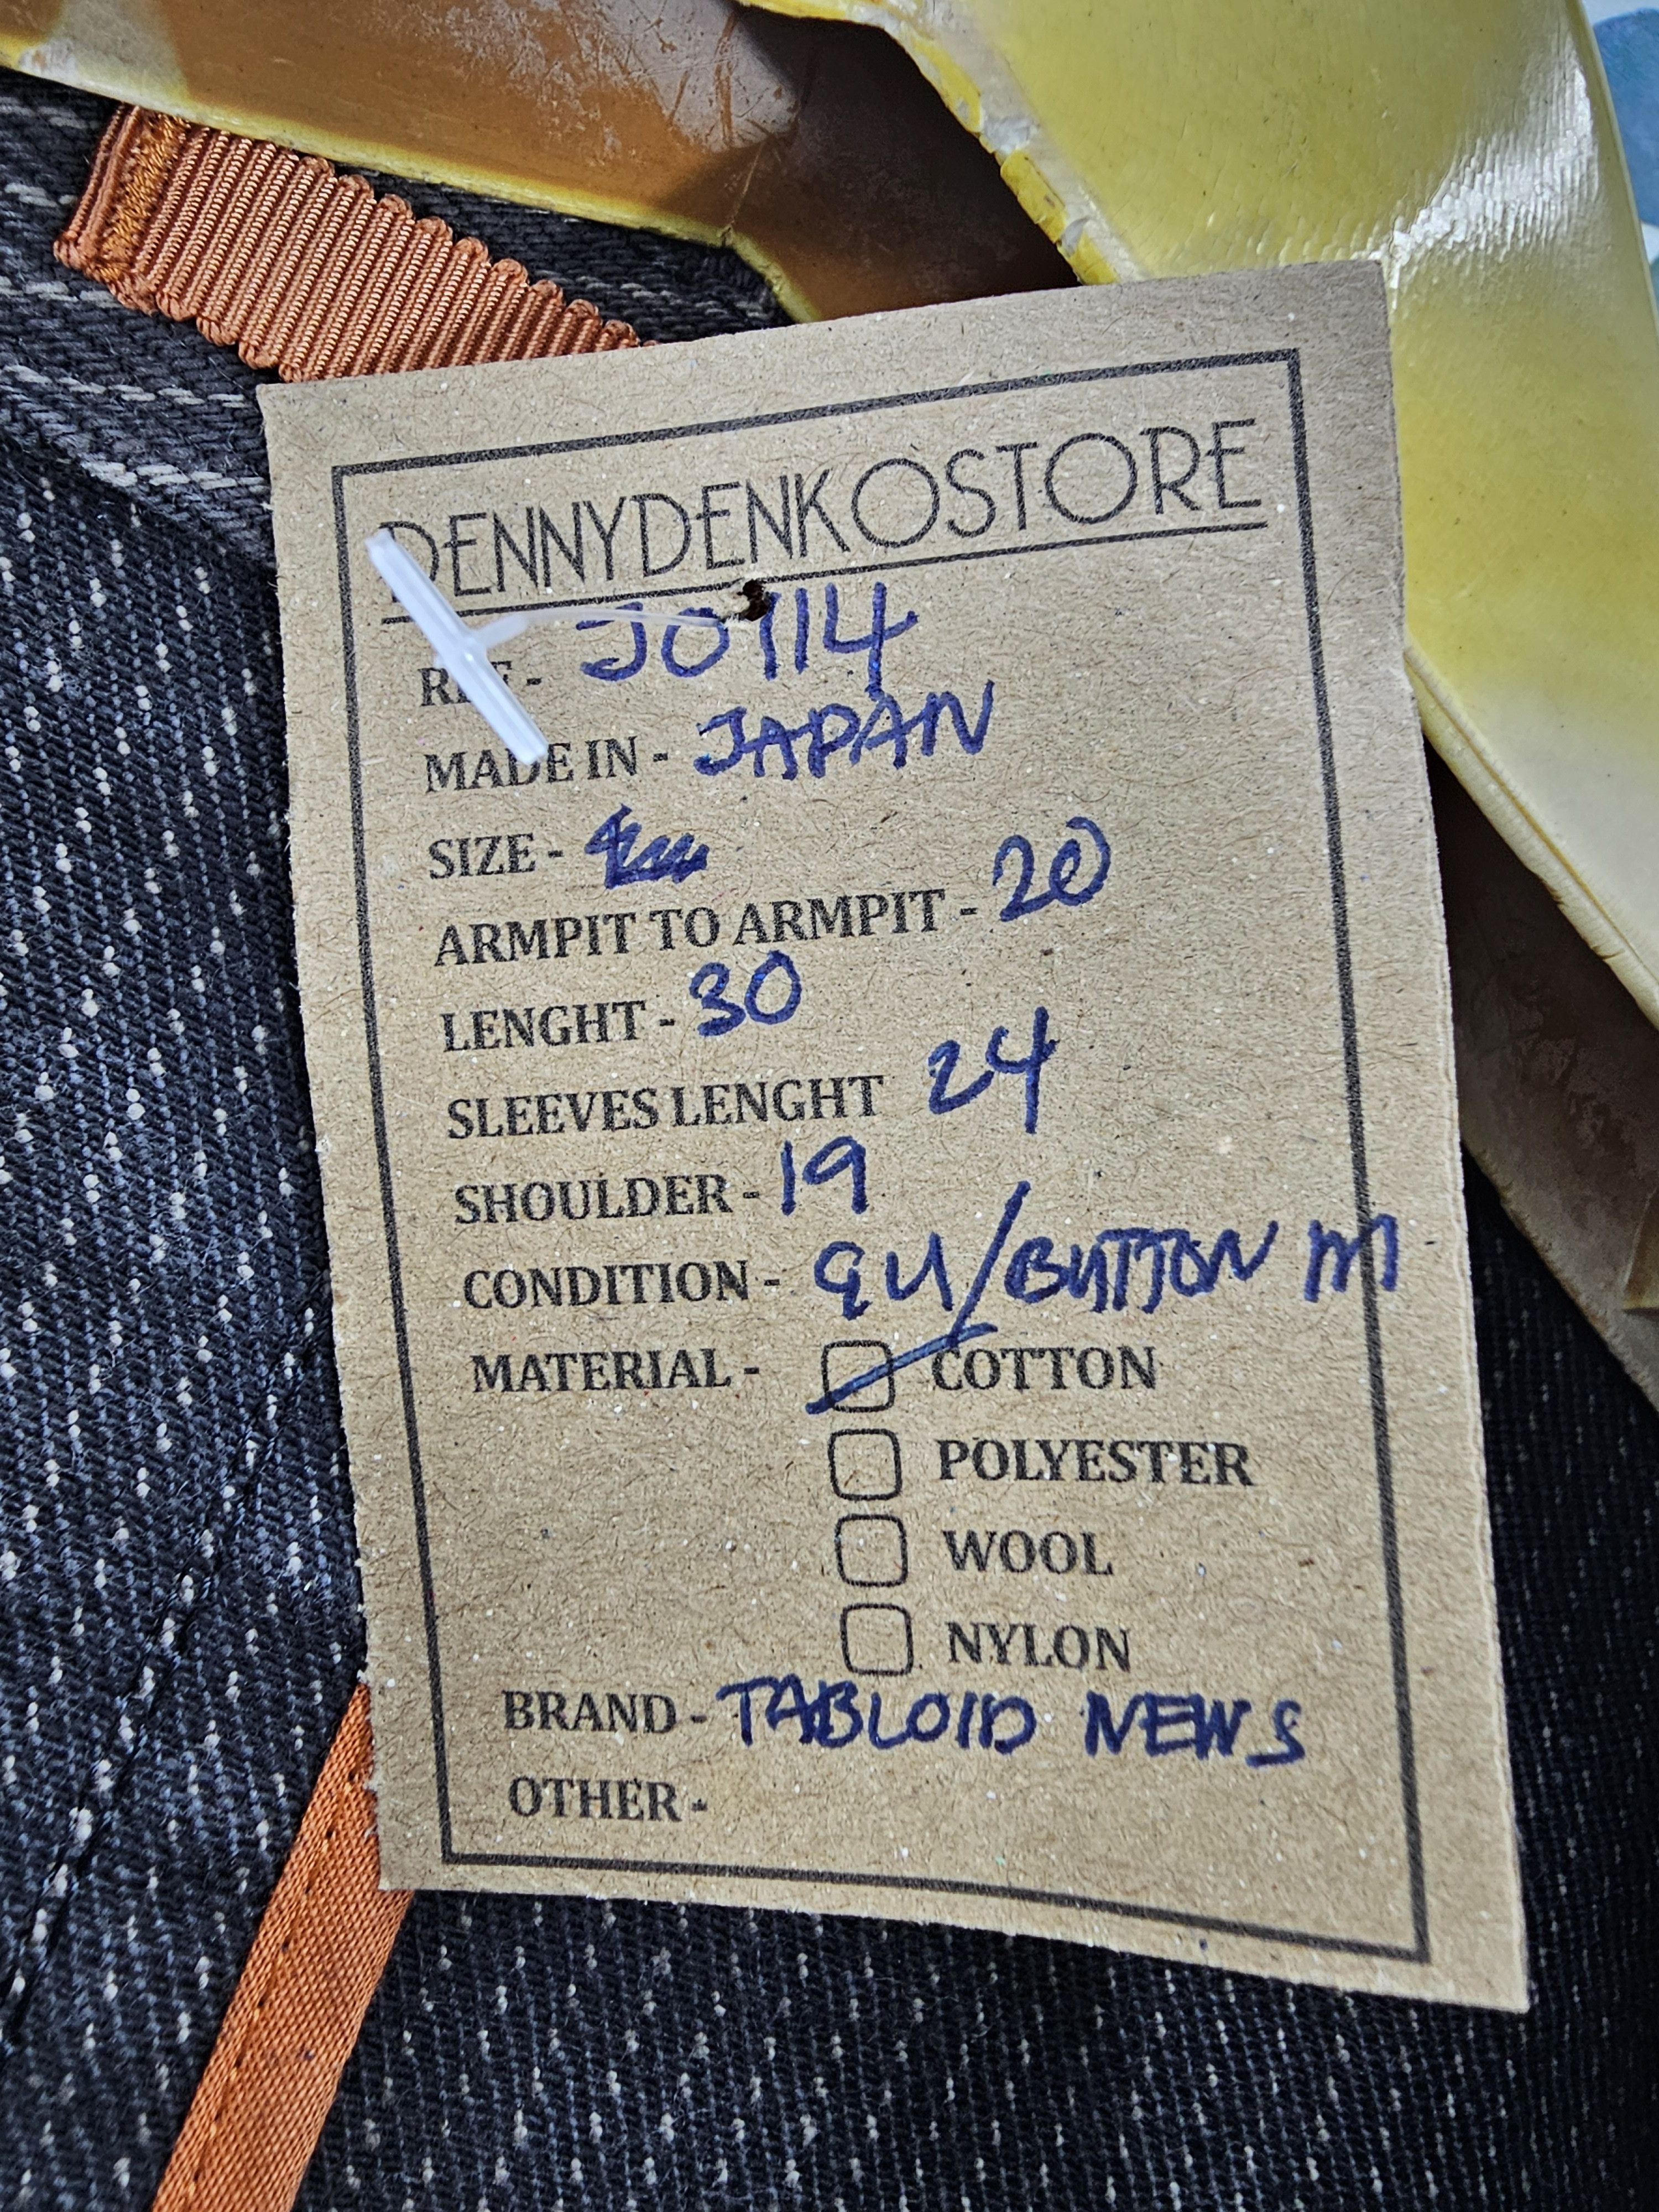 DENNYDENKOSTORE
REF - J0114
MADE IN - JAPAN
SIZE -
ARMPIT TO ARMPIT - 20
LENGHT - 30
SLEEVES LENGHT 24
SHOULDER - 19
CONDITION - 94/BUTTON M
MATERIAL - COTTON
POLYESTER
WOOL
NYLON
BRAND - TABLOID NEWS
OTHER -